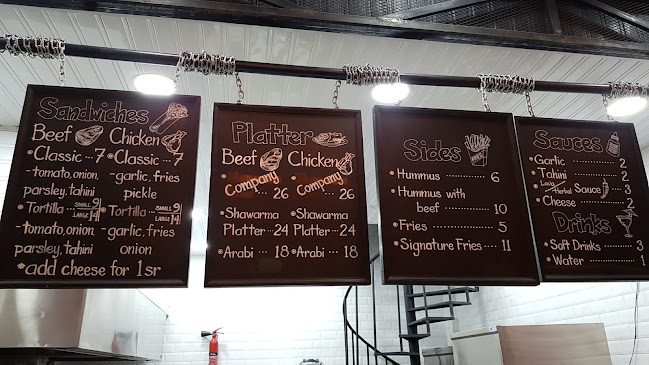 Sandwiches
Beef Chicken
•Classic ...7 •Classic ...7
-tomato,onion, -garlic, fries
parsley,tahini pickle
•Tortilla ... SMALL 9 LARGE 14 •Tortilla ... SMALL 9 LARGE 14
-tomato,onion, -garlic, fries
parsley,tahini onion
*add cheese for 1 sr
Platter
Beef Chicken
•Company ... 26 •Company ... 26
•Shawarma •Shawarma
Platter ...24 Platter ...24
•Arabi ... 18 •Arabi ... 18
Sides
•Hummus ............ 6
•Hummus with
beef ............ 10
•Fries ............ 5
•Signature Fries ...... 11
Sauces
•Garlic ............ 2
•Tahini ............ 2
Sauce ... 3
•Cheese ............ 2
Drinks
•Soft Drinks ...... 3
•Water ............ 1